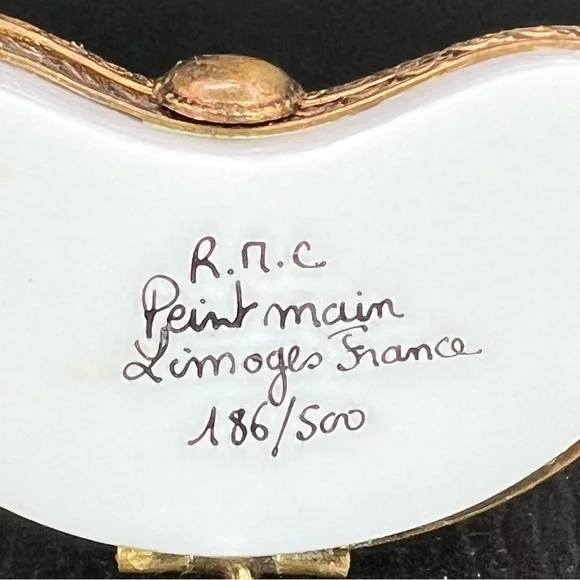 R.M.C
Peint main
Limoges France
186/500